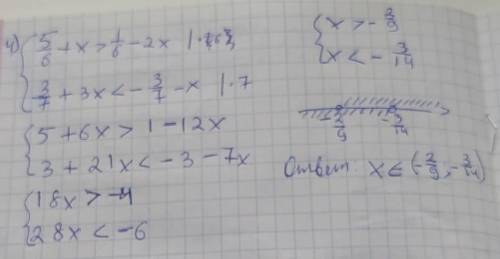 4) { 5/6 + x > 1/6 - 2x | ·6
{ 3/7 + 3x < - 3/7 - x | · 7
{ 5 + 6x > 1 - 12x
{ 3 + 21x < - 3 - 7x
{ 18x > -4
{ 28x < -6
{ x > - 2/9
{ x < - 3/14
-2/9 -3/14
Ответ: x ∈ (-2/9; -3/14)